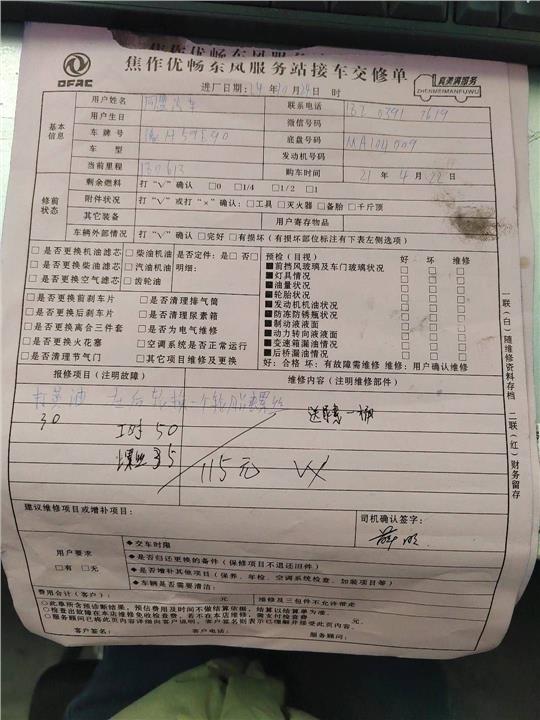 焦作优畅东风服务站接车交修单
DFAC
真美满服务
ZHENMEIMANFUWU
进厂日期: 24 年 10 月 24 日 时
基本信息
用户姓名
联系电话 132 0391 7619
用户生日
微信号码
车牌号 豫H59E90
底盘号码 MA104009
车 型
发动机号码
当前里程 130613
购车时间 21 年 4 月 22 日
修前状态
剩余燃料 打“V”确认 □0 □1/4 □1/2 □1
附件状况 打“V”或打“×”确认:□工具 □灭火器 □备胎 □千斤顶
其它装备 用户寄存物品
车辆外部情况 打“V”确认 □完好 □有损坏(有损坏部位标注有下表左侧选项)
□是否更换机油滤芯 □柴油机油 是否定件:是□ 否□
□是否更换柴油滤芯 □汽油机油 明细:
□是否更换空气滤芯 □齿轮油
□是否更换前刹车片 □是否清理排气筒
□是否更换后刹车片 □是否清理尿素箱
□是否更换离合三件套 □是否为电气维修
□是否更换火花塞 □空调系统是否正常运行
□是否清理节气门 □其它项目维修及更换
预检(目视) 好 坏 维修
■前挡风玻璃及车门玻璃状况 □ □ □
■灯具情况 □ □ □
■油量状况 □ □ □
■轮胎状况 □ □ □
■发动机机油状况 □ □ □
■防冻防锈瓶状况 □ □ □
■制动液液面 □ □ □
■动力转向液液面 □ □ □
■变速箱漏油情况 □ □ □
■后桥漏油情况 □ □ □
好:合格 坏:有故障需维修 维修:用户确认维修
报修项目(注明故障) 维修内容(注明维修部件)
打黄油 左后轮换一个轮胎螺丝
30
送尿素一桶
工时 50
螺丝 35
115元
建议维修项目或增补项目:
司机确认签字:
用户要求
□有 □无
◆交车时限
◆是否归还更换的备件(保修项目不退还旧件)
◆是否增补其他项目(保养、年检、空调系统检查、加装项目等)
◆车辆是否需要清洁:
费用合计(客户): 元 维修及三包件不允许带走
○此单所含预诊断结果,预估费用及时间不做结算依据,结算以结算单为准。
○检查出故障在本店维修免收检查费,若不在本店维修,需支付检查费 元。
○服务顾问已将此页内容详细向客户说明。客户签名则表示已理解并接受此页内容。
客户签名: 客户电话: 服务顾问:
一联(白)随维修资料存档 二联(红)财务留存